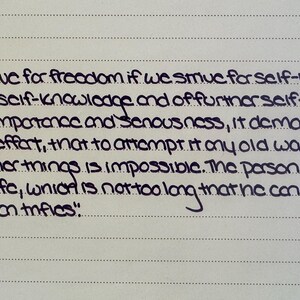 ve for freedom if we strive for self-
self-knowledge and of further self-
mportance and seriousness, it dema
effort, that to attempt it any old wa
her things is impossible. The person
fe, which is not too long that he can
on trifles".